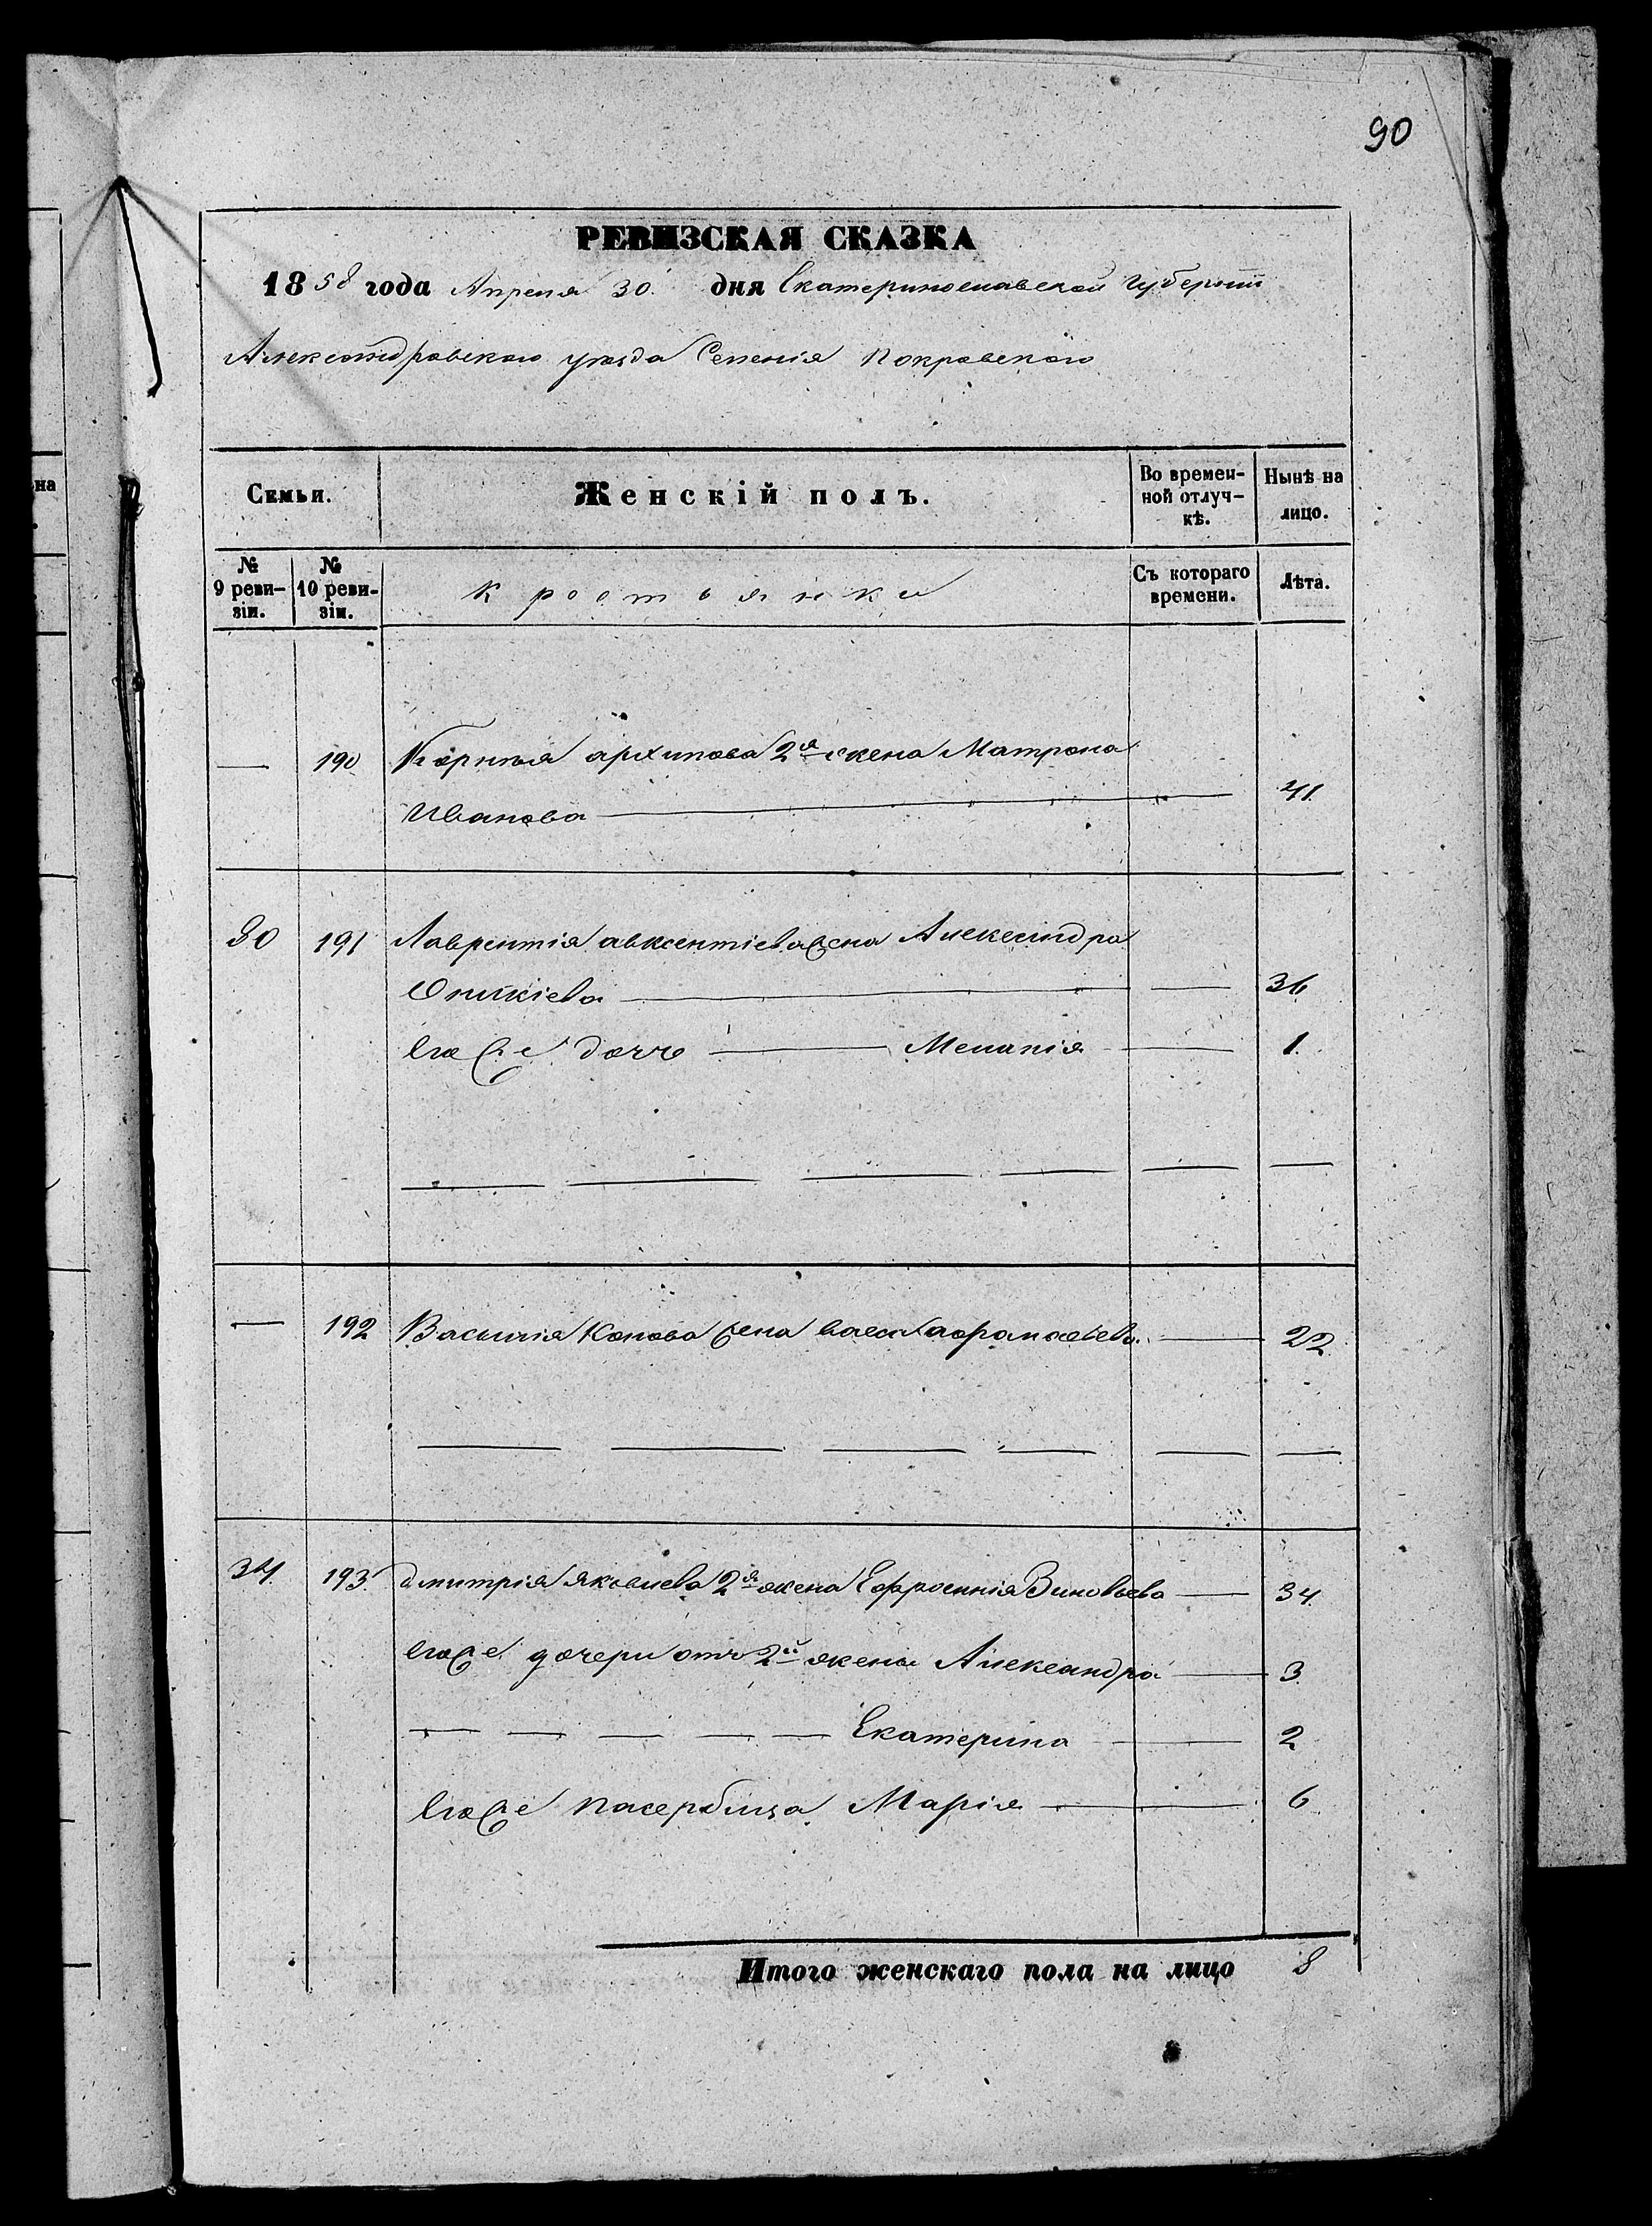 90
РЕВИЗСКАЯ СКАЗКА
1858 года Апреля 30. дня Екатеринославской Губерніи
Александровскаго уѣзда Селенія Покровскаго
на
Семьи.
Женскій полъ.
Во времен-
ной отлуч-
кѣ.
Нынѣ на
лицо.
№
9 реви-
зіи.
№
10 реви-
зіи.
Крестьянки
Съ котораго
времени.
Лѣта.
— 190 Корнѣя Архипова 2я жена Матрона
Иванова — 41.
30 191 Лаврентія Авксентіева жена Александра
— 36
Его же дочь — Меланія — 1.
— 192 Василія Конова жена Васса Афанасьева — 22
34. 193. Дмитрія Яковлева 2я жена Ефросинія Зиновьева — 34.
Его же дочери отъ 2й жены Александра — 3.
— — — — — Екатерина — 2
Его же пасербица Марія — 6
Итого женскаго пола на лицо 8